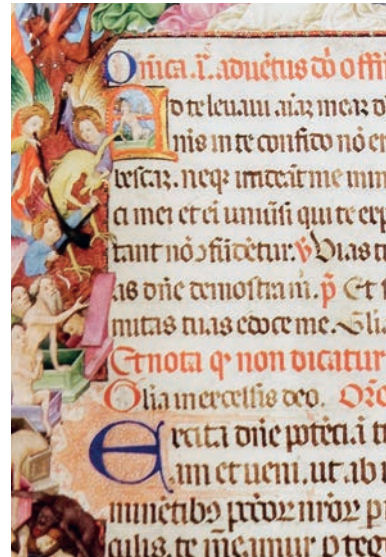 Dñica.ı̃. aduẽtus dõ offi
Ad te leuaui aı̃az meaz d
nis in te confido nõ er
bescaz. neqꝫ irrideãt me inim
ci mei et eı̃ uniũsi qui te exp
tant nõ ɔfũdẽtur. v̾ Vias t
as dñe demõstra m̃. p̃ Et s
mitas tuas edoce me. Glia
Et nota qꝫ non dicatur
Glia in excelsis deo. Orõ
Excita dñe potẽcı̃ã t
am et ueni. ut ab i
minẽtibꝫ pccõꝝ nrõꝝ p
culis. te m̃eamur p̃teg